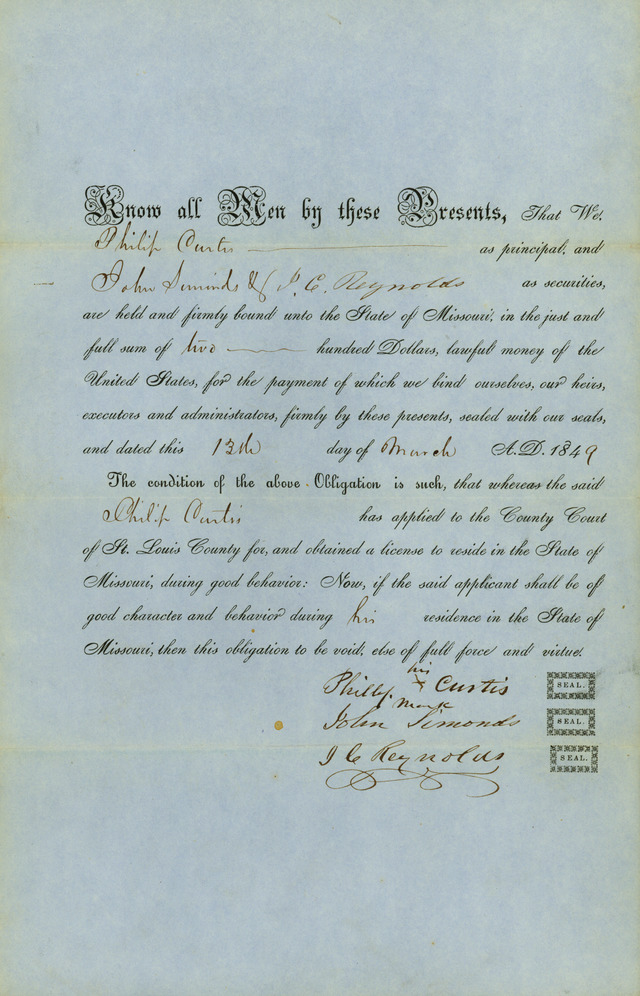 Know all Men by these Presents, That We,
Philip Curtis as principal, and
John Simonds & J. C. Reynolds as securities,
are held and firmly bound unto the State of Missouri, in the just and
full sum of two hundred Dollars, lawful money of the
United States, for the payment of which we bind ourselves, our heirs,
executors and administrators, firmly by these presents, sealed with our seals,
and dated this 13th day of March A.D. 1849
The condition of the above Obligation is such, that whereas the said
Philip Curtis has applied to the County Court
of St. Louis County for, and obtained a license to reside in the State of
Missouri, during good behavior: Now, if the said applicant shall be of
good character and behavior during his residence in the State of
Missouri, then this obligation to be void, else of full force and virtue.
his
Philip x Curtis SEAL.
mark
John Simonds SEAL.
J C Reynolds SEAL.